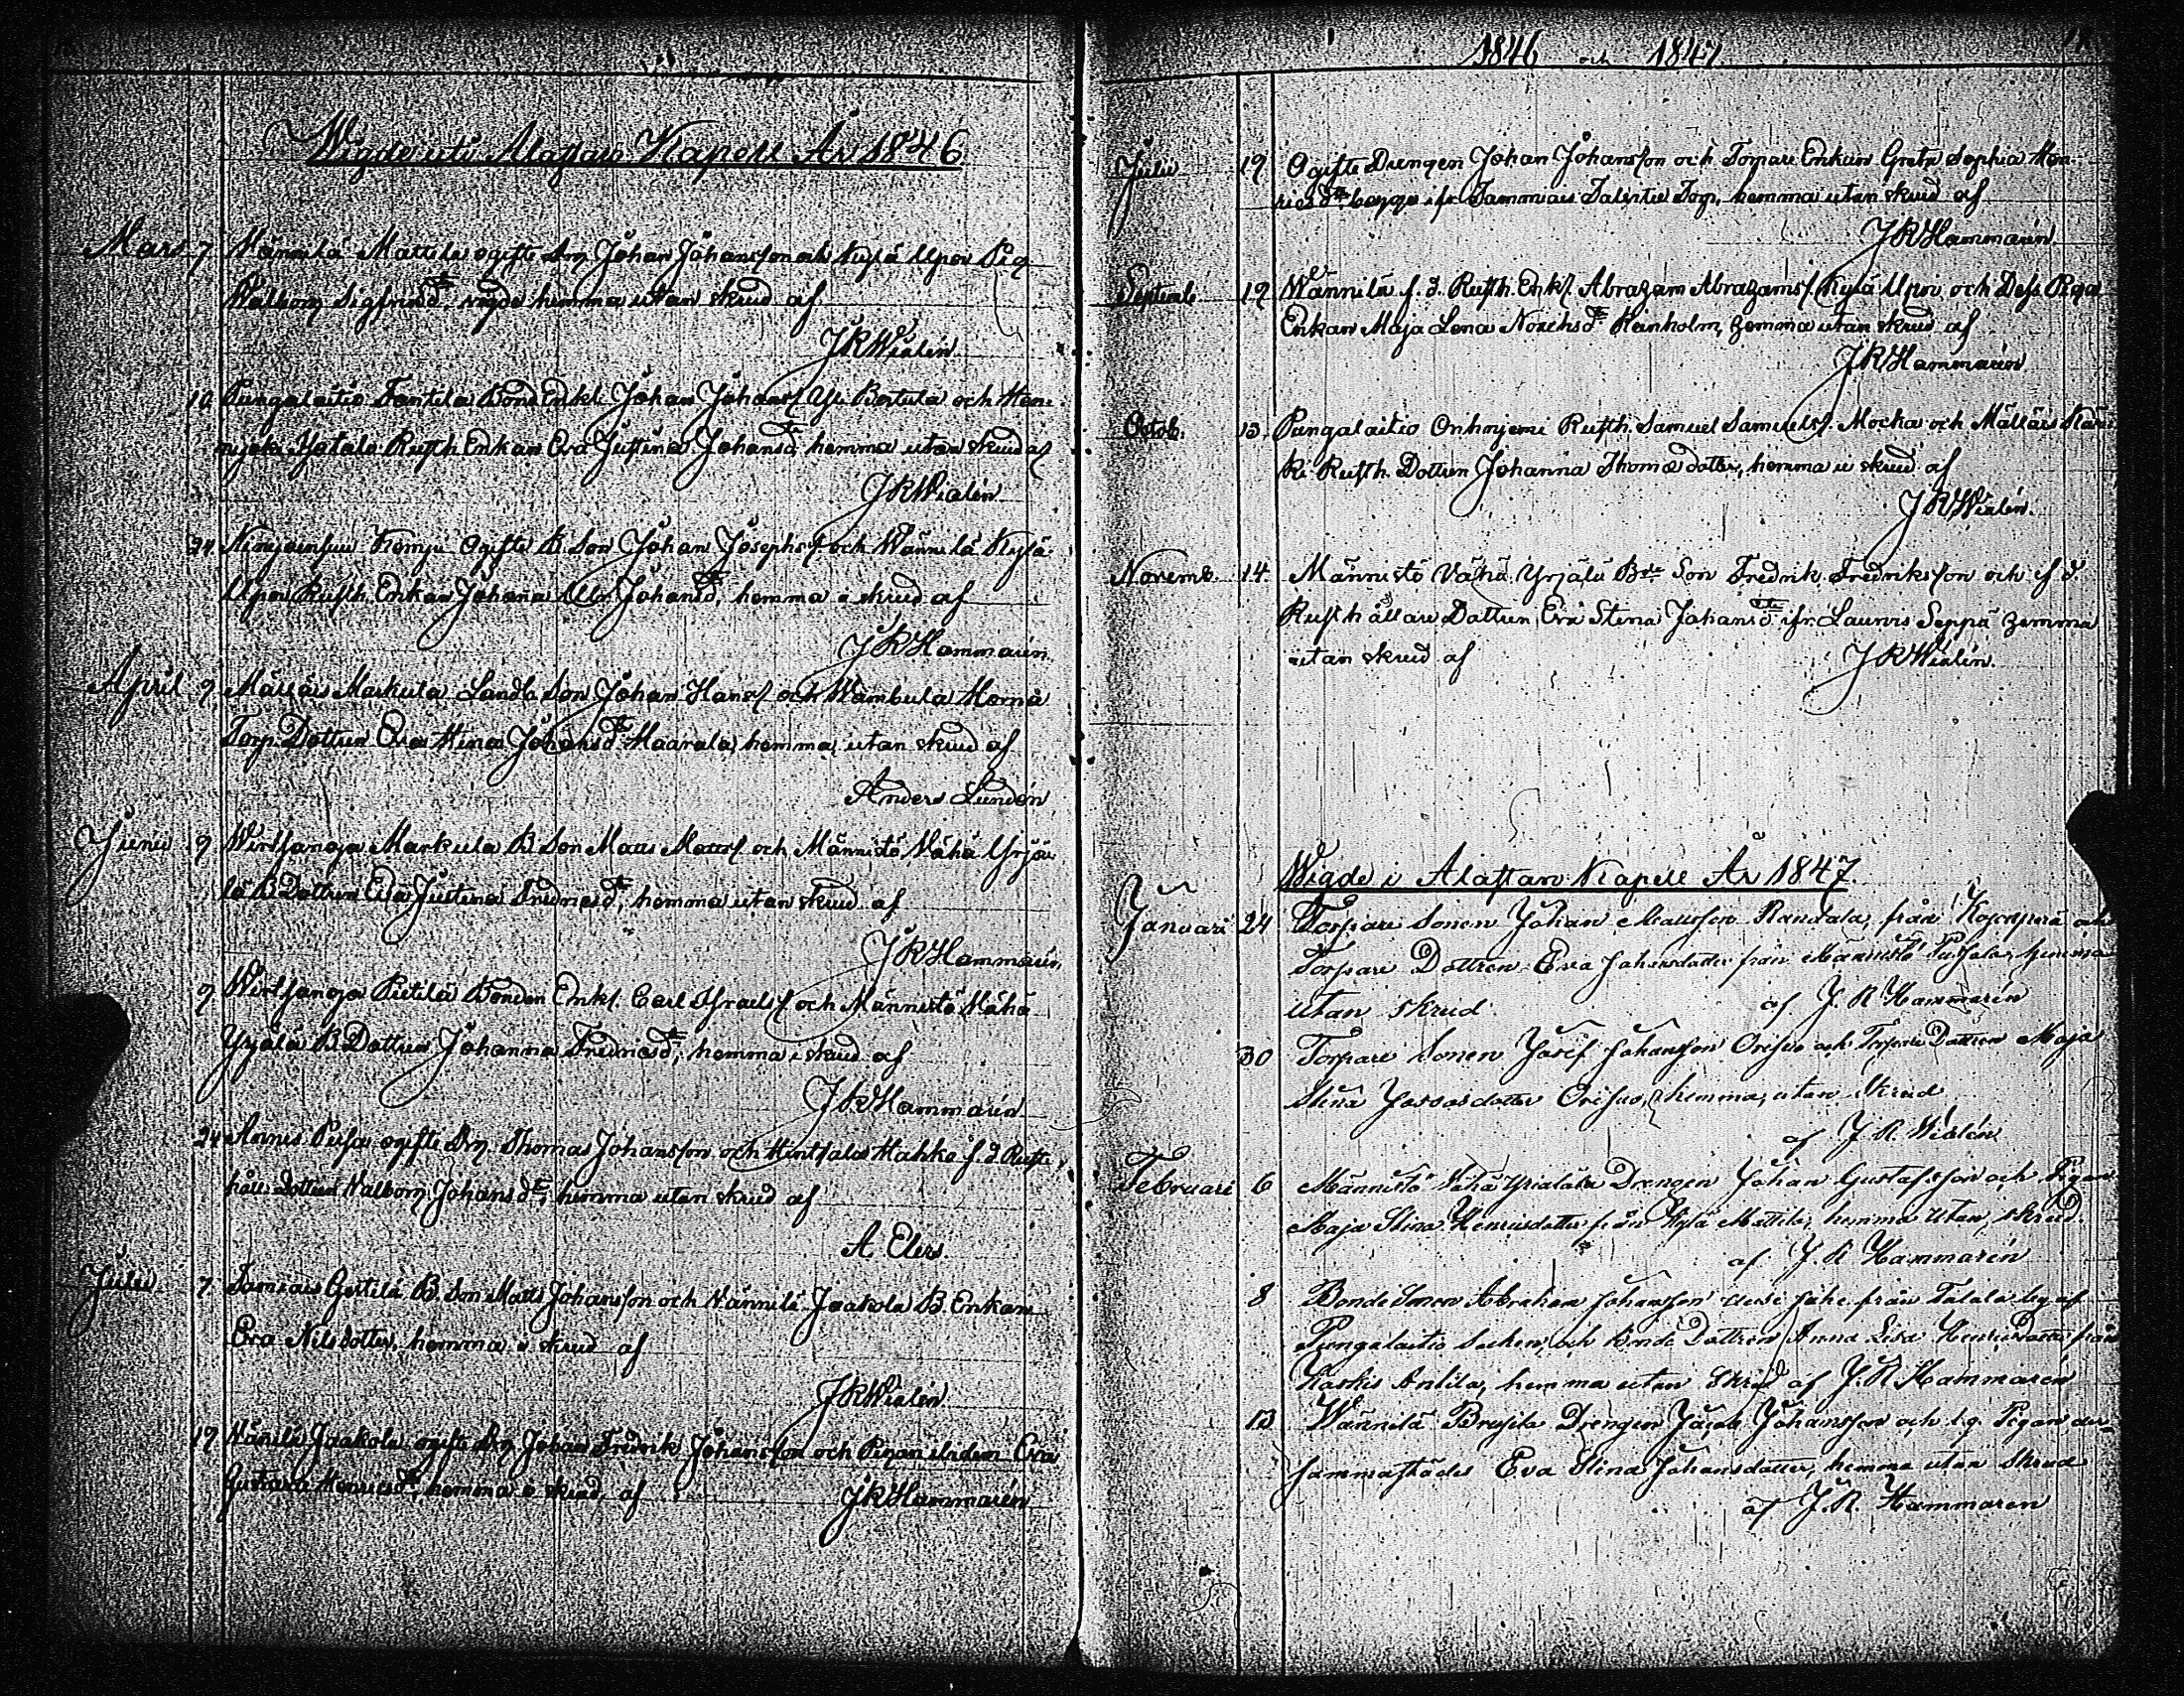 Wigde uti Alastaro Kapell År 1846
Mars 7 Männilä Mattila ogifte Drg Johan Johansson och Kylä Upon Pig.
Walborg Sigfridsdr vigde hemma utan skrud af
J R Wialén
10 Pungalaitio Tantila Bond Enkl. Johan Johanss Yli Bertula och Hen-
nijoki Ratsh Enkan Eva Justina Johansdr, hemma utan skrud af
J R Wialén
24 Ogifte B. Son Johan Josephss. och Wännilä Kylä
Upon Rusth. Enkan Johana Johansdr, hemma i skrud af
J R Hammarén
April 9 Mälläis Markula Landb. Son Johan Hanss och Wambula
Torp. Dottren Eva Johansdr Haarala, hemma utan skrud af
Anders Lunden
Junii 9 Wirtsanoja Markula B. Son Matts Mattss och Männistö Vähä Yrjä-
lä B. Dottren Eva Justina Fredricsdr, hemma utan skrud af
J R Hammarén
9 Wirtsanoja Pietilä Bonden Enkl. Carl Israelss och Männistö Vähä
Yrjälä B. Dottren Johanna Fredricsdr, hemma i skrud af
J R Hammarén
24 ogifte Drg. Thomas Johansson och Hintsala Mahka f. d. Rust-
håll. Dottren Walborg Johansdr, hemma utan skrud af
A. Elers.
Julii 7 B. Son Matts Johansson och Wännilä Jaakola B. Enkan
Eva Nilsdotter, hemma i skrud af
J R Wialén
19 Wänilä Jaakola ogifte Drg Johan Fredrik Johansson och Pigan Eva
Gustava Henricsdr, hemma i skrud af J R Hammarén
1846 och 1847
Julii 19 Ogifte Drengen Johan Johansson och Torpare Enkan Greta Sophia Hen-
ricsdr begge ifr. Tammiais Torp, hemma utan skrud af
J R Hammarén
Septemb. 19 Wännilä f. d. Rusth. Enkl. Abraham Abrahamss Kylä Upon och Dess Piga
Enkan Maja Lena Heinholm, hemma utan skrud af
J R Hammarén
Octob. 13 Pungalaitio Rusth. Samuel Samuelss. Mocka och Mälläis
Rusth. Dottren Johanna Thomædotter, hemma i skrud af
J R Wialén.
Novemb. 14. Männistö Vähä Yrjälä Bde Son Fredrik Fredriksson och f. d.
Rusthållare Dottren Eva Stina Johansdr ifr. Laurois Seppä hemma
utan skrud af J R Wialén.
Wigde i Alastaro Kapell År 1847.
Januari 24 Torpare Sonen Johan Mattsson Randala, från Kojonperä och
Torpare Dottren Eva Johansdotter från Männistö hemma
utan skrud. af J. R Hammarén
30 Torpare Sonen Josef Johansson Orisuo och Torpare Dottren Maja
Stina Orisuo, hemma, utan skrud
af J. R. Wialén
Februari 6 Männistö Vähä Drengen Johan Gustafsson och Pigan
Maja Stina Henricsdotter från Kylä Mattila, hemma utan skrud.
af J. R Hammarén
8 Bonde Sonen Abraham Johansson från Talala by af
Pungalaitio Socken, och Bonde Dottren Anna Lisa från
Koskis Antila, hemma utan skrud af J. R Hammarén
13 Wännilä Drengen Jacob Johansson och Pigan der-
sammastädes Eva Stina Johansdotter, hemma utan skrud
af J. R. Hammarén